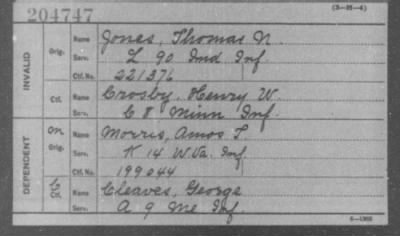 204747
(3-25-4)
INVALID
Orig.
Name Jones, Thomas N.
Serv. L 90 Ind Inf.
Ctf. No. 221376
Ctf.
Name Crosby, Henry W.
Serv. C 8 Minn Inf.
DEPENDENT
Orig.
Name Morris, Amos T.
Serv. K 14 W.Va. Inf.
Ctf. No. 199044
C
Ctf.
Name Cleaves, George
Serv. A 9 Me Inf.